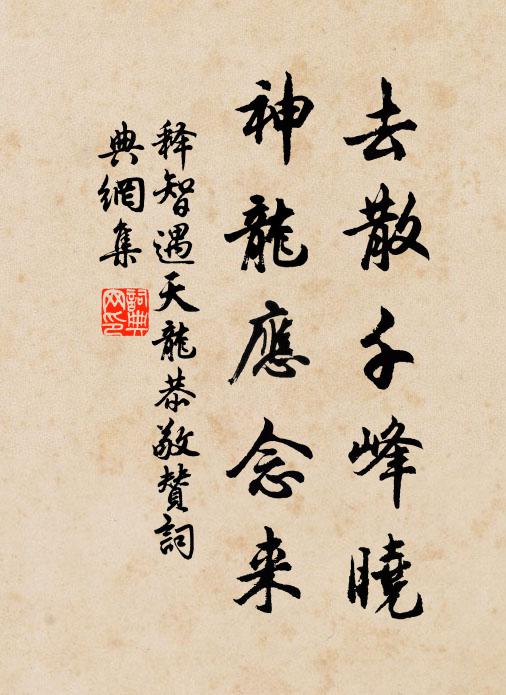 去散千峰曉
神龍應念来
釋智遇天龍恭敬贊詞
典網集
詞典網印